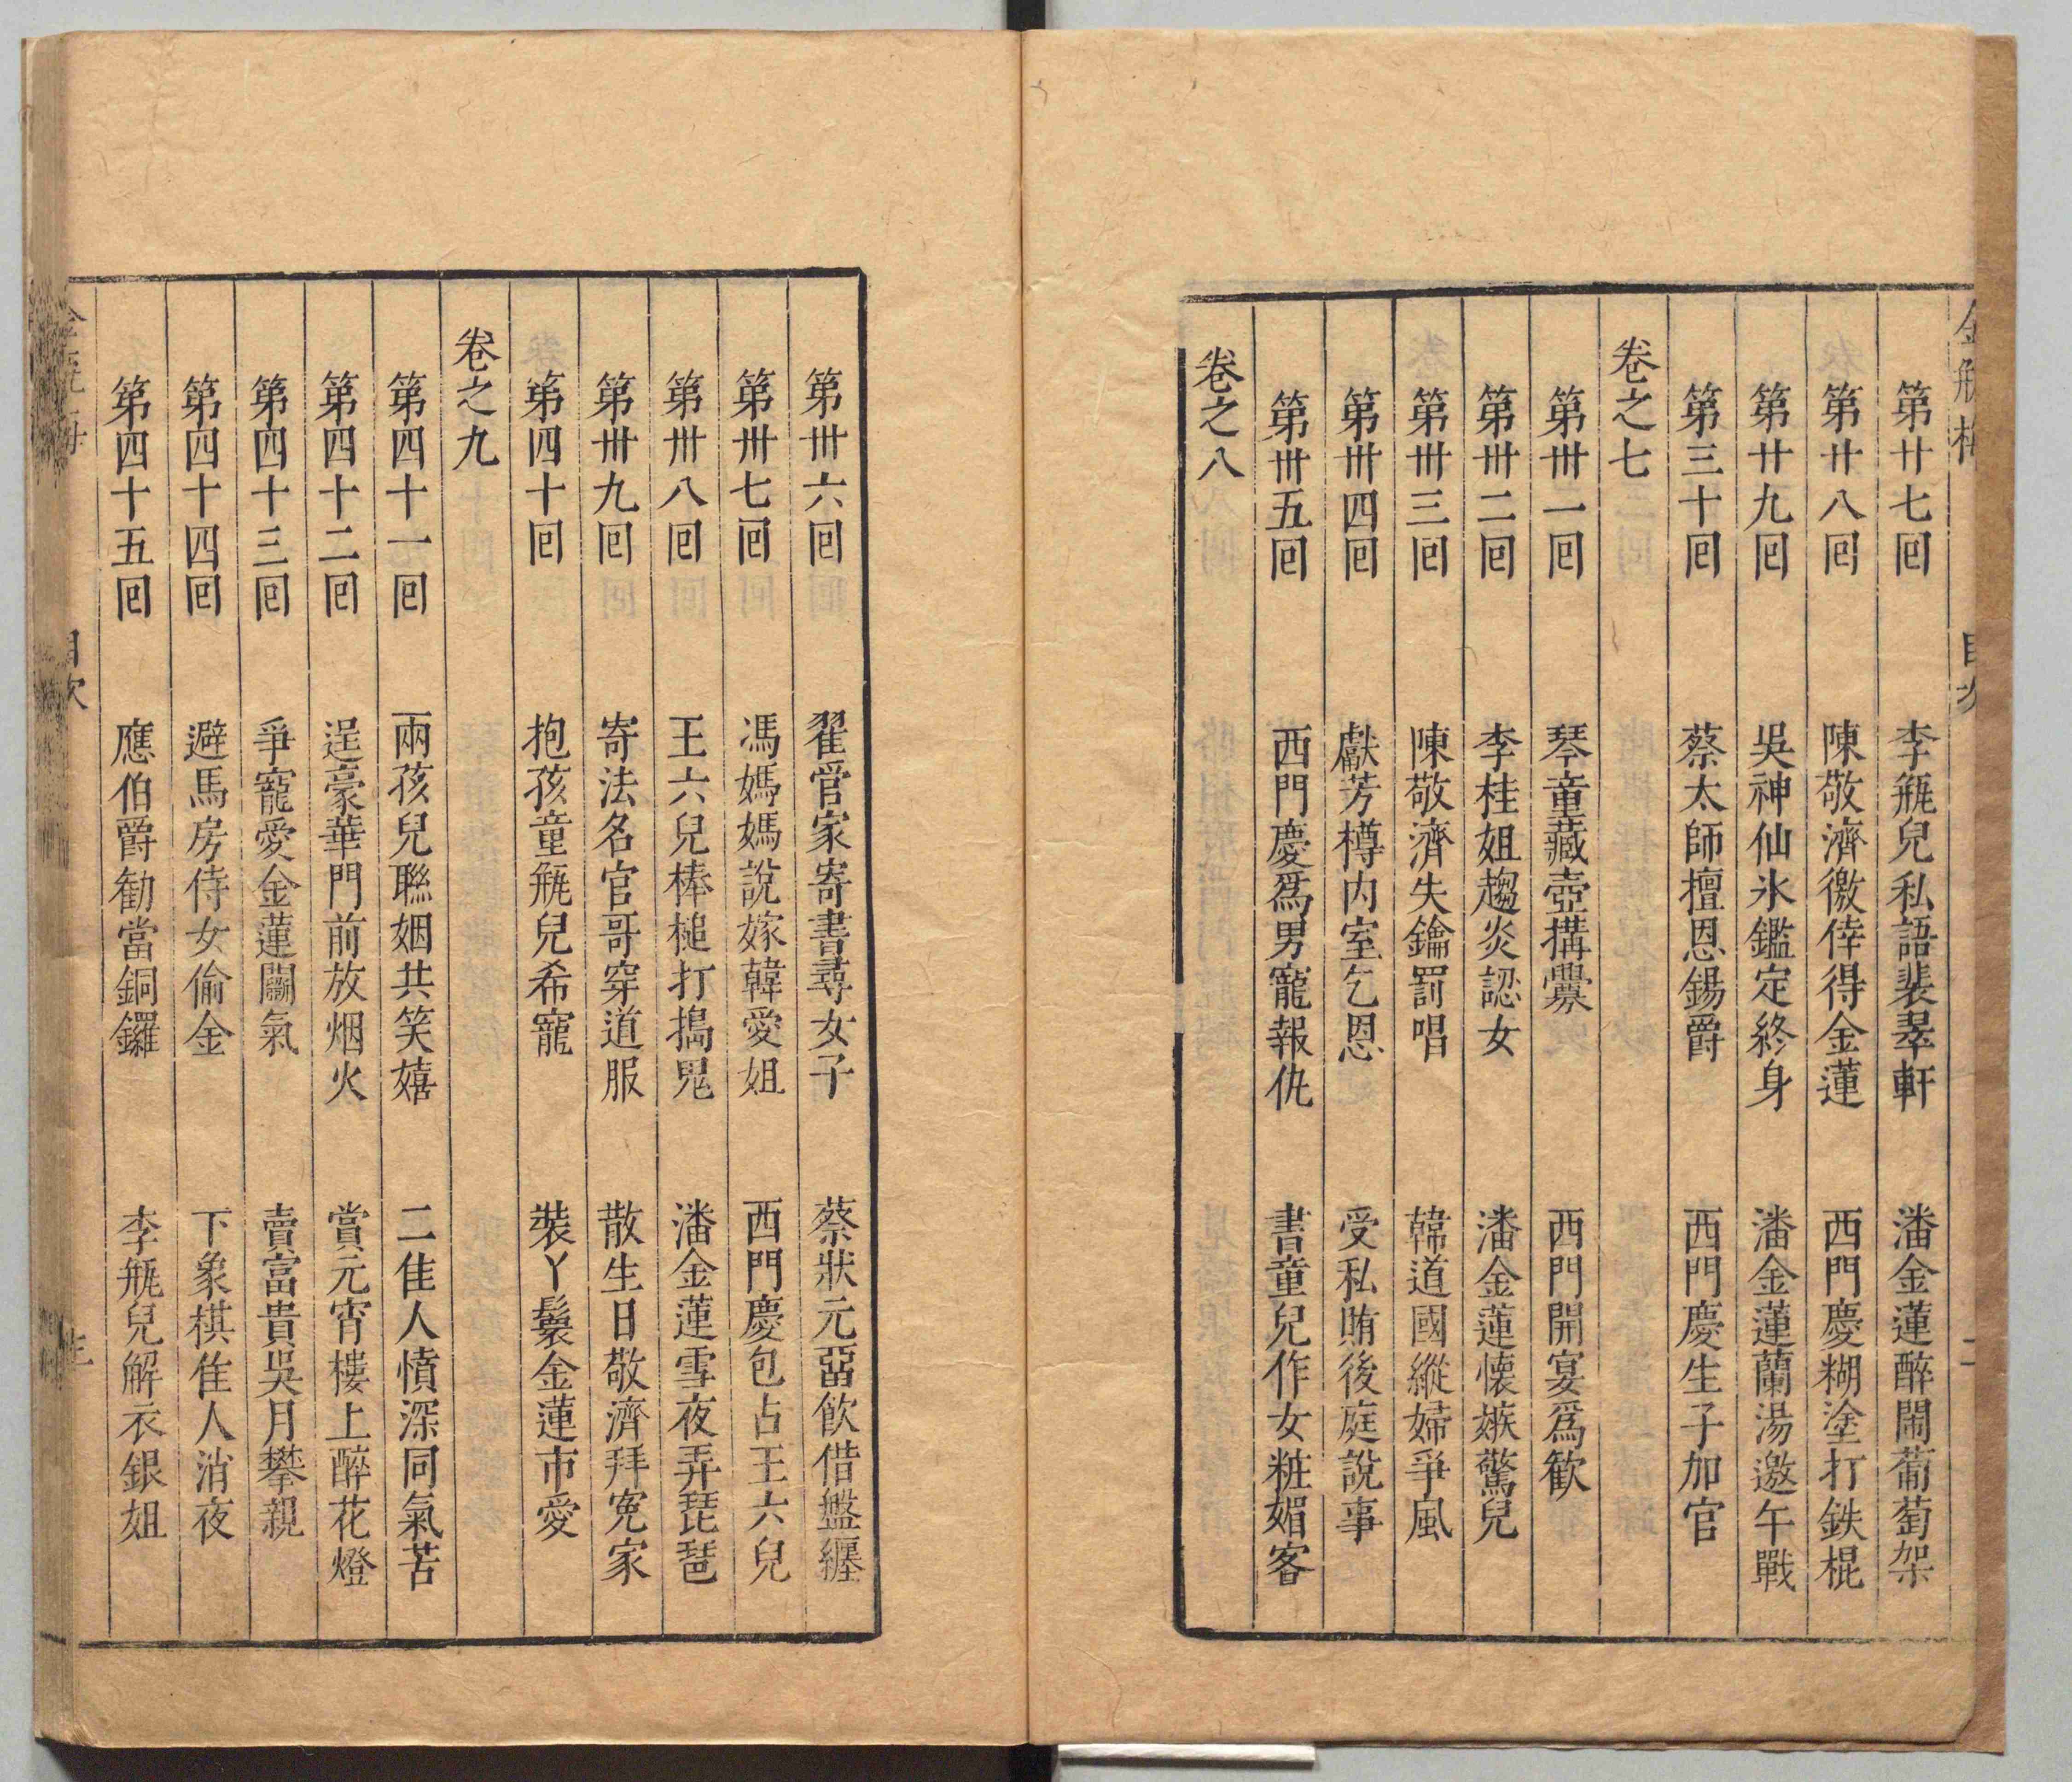 金瓶梅 目次 二
第廿七回 李瓶兒私語裴翠軒 潘金蓮醉閙葡萄架
第廿八回 陳敬濟徼倖得金蓮 西門慶糊塗打鉄棍
第廿九回 吳神仙氷鑑定終身 潘金蓮蘭湯邀午戰
第三十回 蔡太師擅恩錫爵 西門慶生子加官
卷之七
第卅一回 琴童藏壺搆釁 西門開宴爲歡
第卅二回 李桂姐趨炎認女 潘金蓮懐嫉驚兒
第卅三回 陳敬濟失鑰罰唱 韓道國縱婦爭風
第卅四回 獻芳樽內室乞恩 受私賄後庭說事
第卅五回 西門慶爲男寵報仇 書童兒作女粧媚客
卷之八
第卅六回 翟管家寄書尋女子 蔡狀元畱飲借盤纏
第卅七回 馮媽媽說嫁韓愛姐 西門慶包占王六兒
第卅八回 王六兒棒槌打搗鬼 潘金蓮雪夜弄琵琶
第卅九回 寄法名官哥穿道服 散生日敬濟拜寃家
第四十回 抱孩童瓶兒希寵 裝丫鬟金蓮市愛
卷之九
第四十一回 兩孩兒聯姻共笑嬉 二佳人憤深同氣苦
第四十二回 逞豪華門前放烟火 賞元宵樓上醉花燈
第四十三回 爭寵愛金蓮鬭氣 賣富貴吳月攀親
第四十四回 避馬房侍女偷金 下象棋佳人消夜
第四十五回 應伯爵勸當銅鑼 李瓶兒解衣銀姐
目次